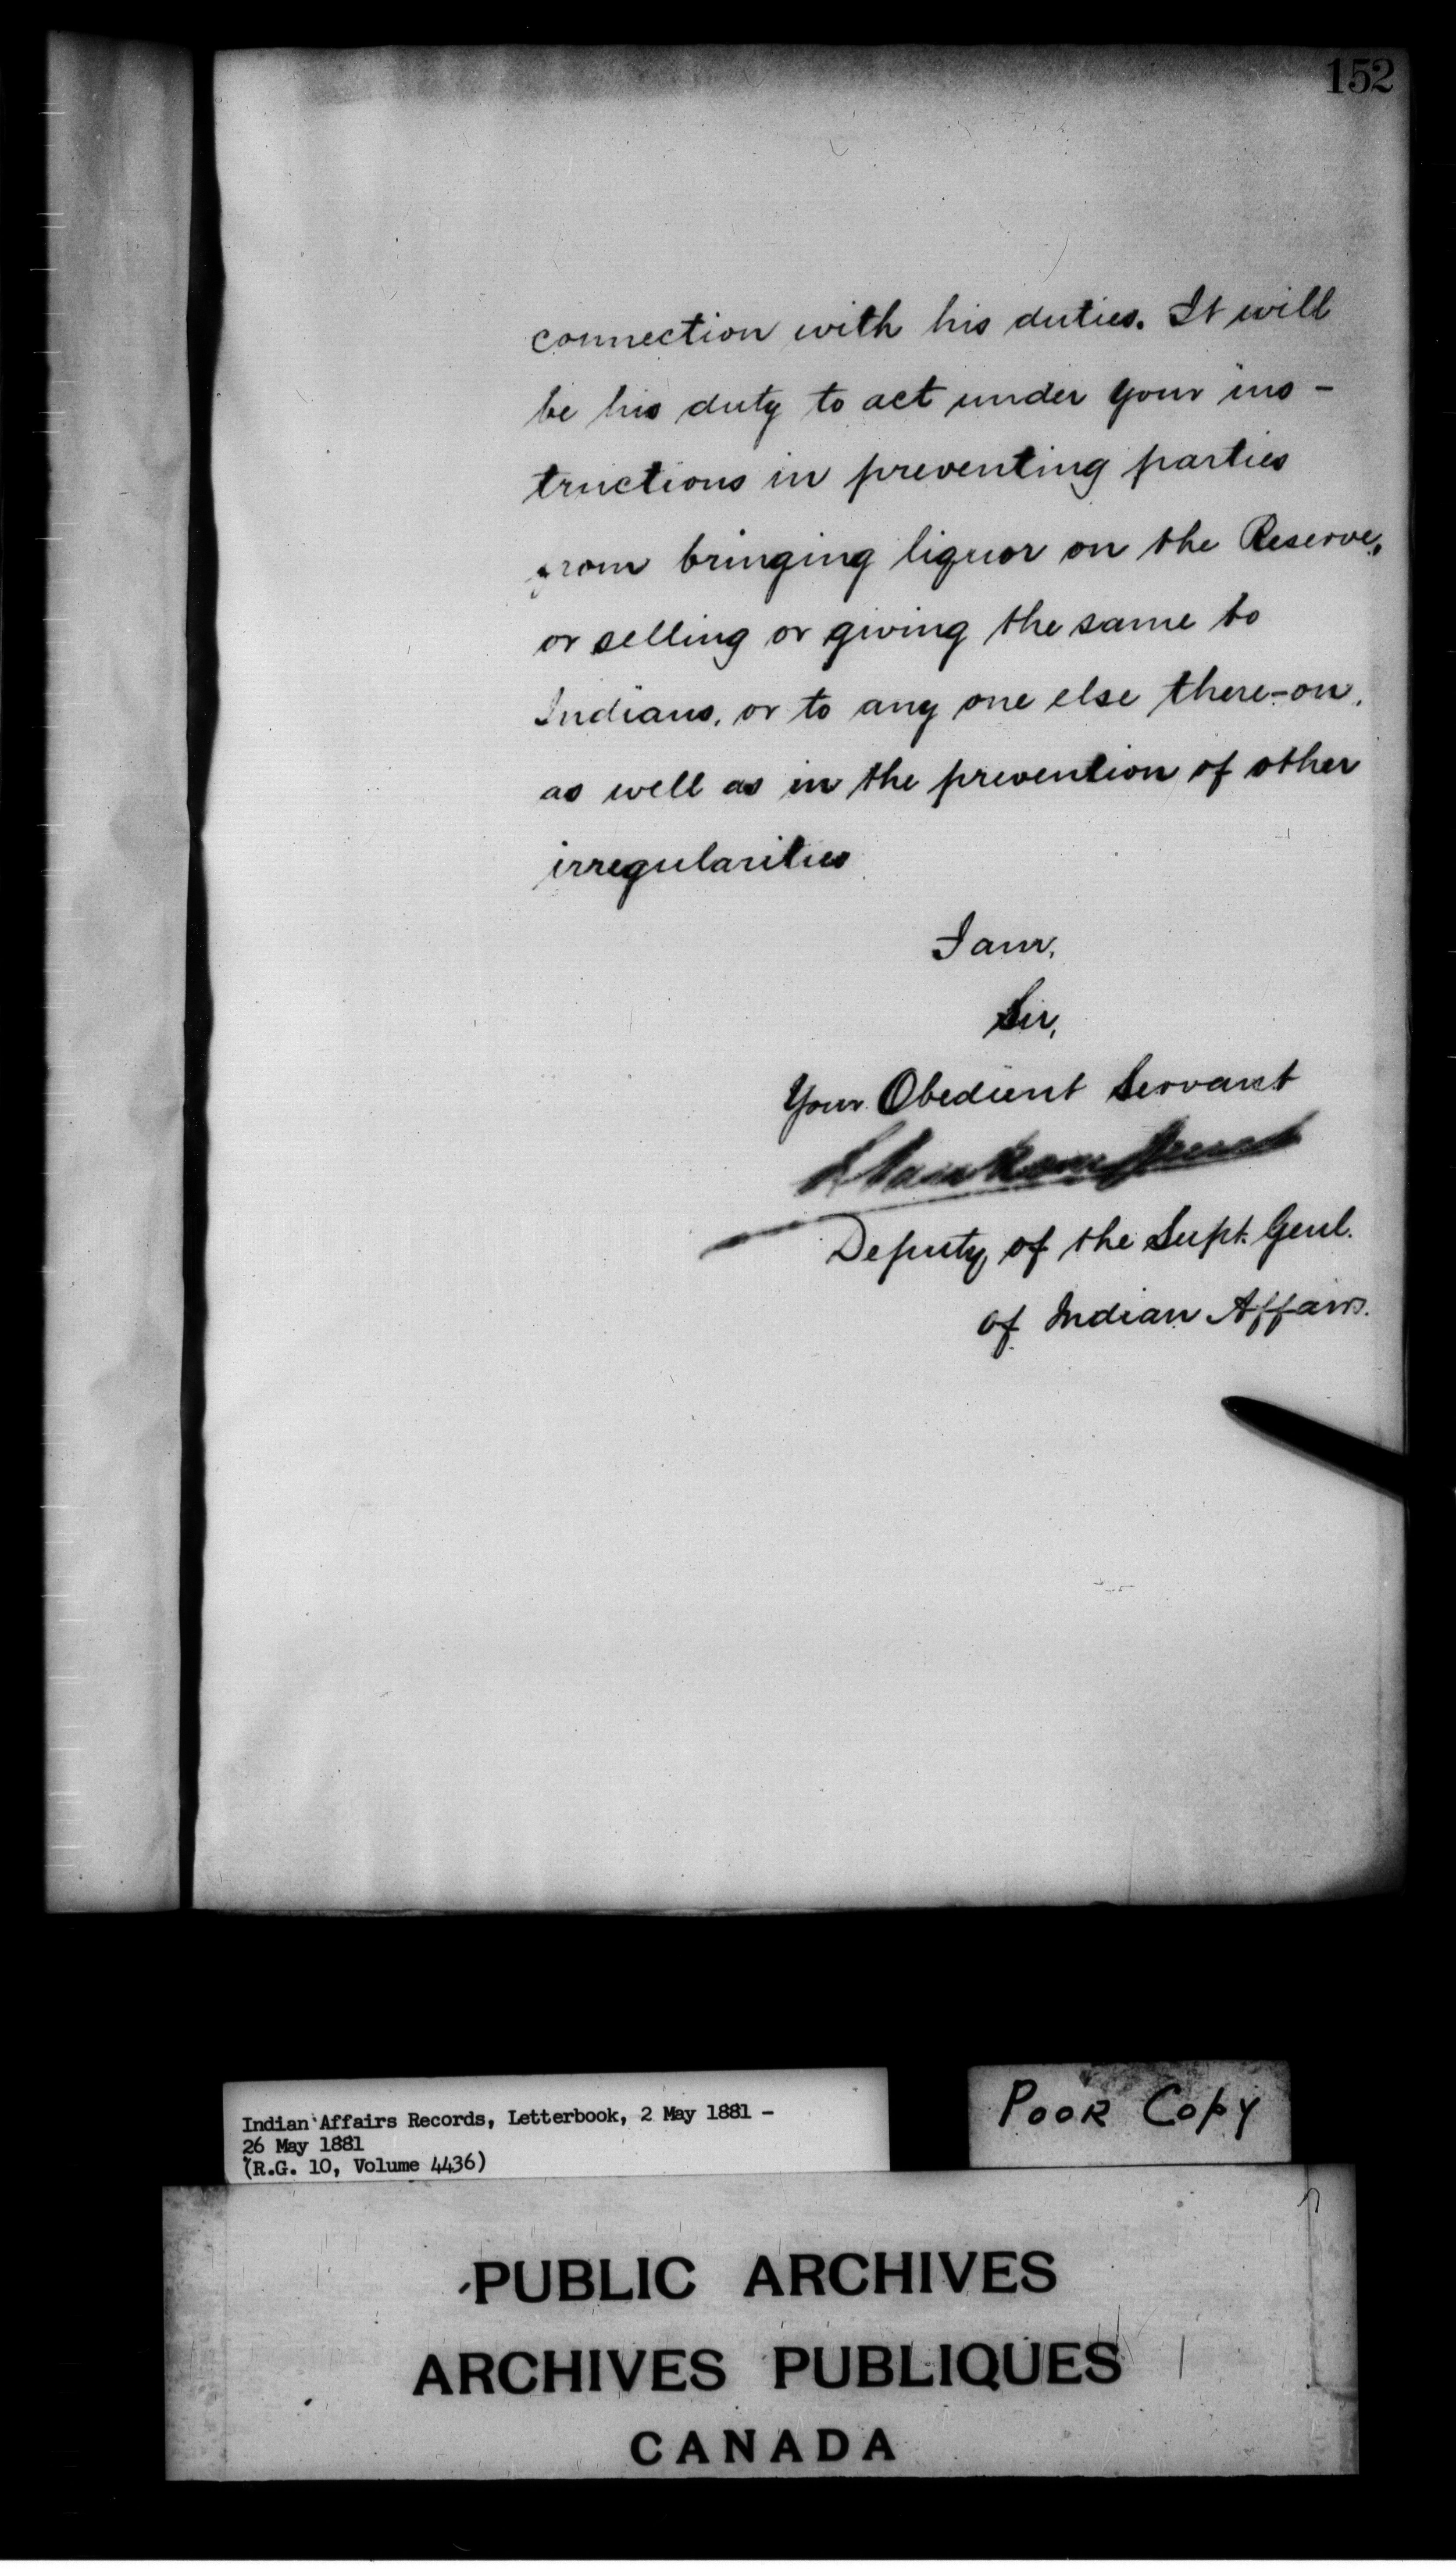 152
connection with his duties. It will
be his duty to act under your ins-
tructions in preventing parties
from bringing liquor on the Reserve,
or selling or giving the same to
Indians, or to any one else there-on,
as well as in the prevention of other
irregularities
I am,
Sir,
Your Obedient Servant
Deputy of the Supt. Genl.
of Indian Affairs.
Indian Affairs Records, Letterbook, 2 May 1881 -
26 May 1881
(R.G. 10, Volume 4436)
POOR COPY
PUBLIC ARCHIVES
ARCHIVES PUBLIQUES
CANADA